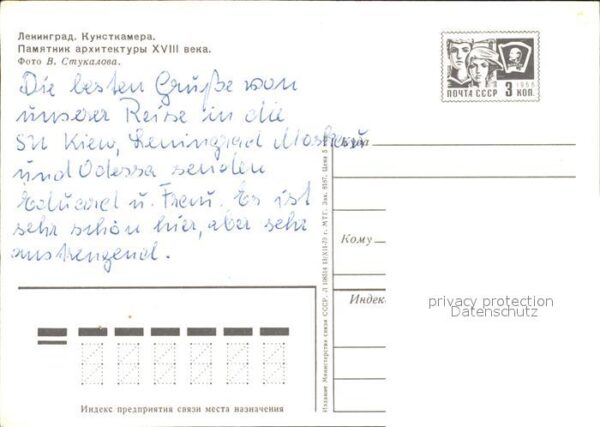 Ленинград. Кунсткамера.
Памятник архитектуры XVIII века.
Фото В. Стукалова.
Die besten Grüße von
unserer Reise in die
SU Kiew, Leningrad Moskau
und Odessa senden
Eduard u. Frau. Es ist
sehr schön hier, aber sehr
anstrengend.
ПОЧТА СССР 3 КОП.
1966
Куда
Кому
Индекс
privacy protection
Datenschutz
Издание Министерства связи СССР.
Индекс предприятия связи места назначения